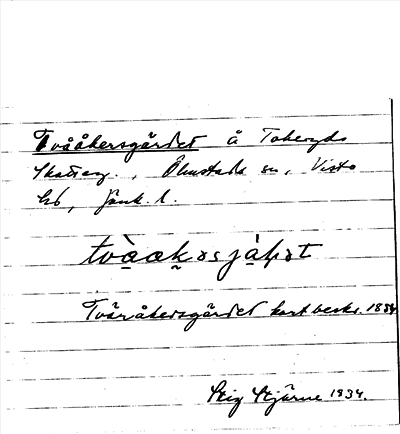 Tvååkersgärdet å Takeryds
Skatteg., Ölmstads sn, Vista
hd, Jönk. l.
tvàakəsjàḥət
Tvåråkersgärdet kart beskr. 1834
Stig Stjärne 1934.